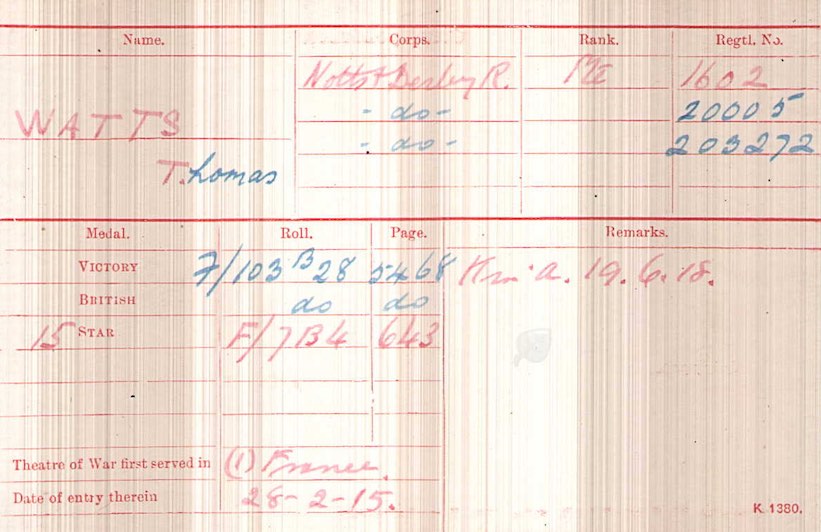 Name. Corps. Rank. Regtl. No.
Notts & Derby R. Pte 1602
WATTS - do - 20005
- do - 203272
Thomas
Medal. Roll. Page. Remarks.
VICTORY F/103 B 28 5468 K in A. 19.6.18.
BRITISH do do
15 STAR F/7B4 643
Theatre of War first served in (1) France.
Date of entry therein 28-2-15.
K 1380.